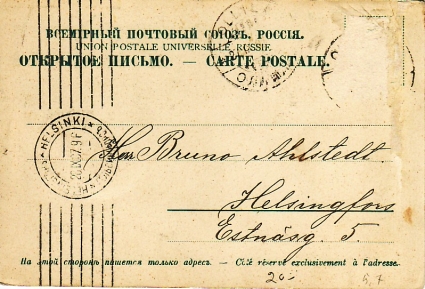 ВСЕМІРНЫЙ ПОЧТОВЫЙ СОЮЗЪ. РОССІЯ.
UNION POSTALE UNIVERSELLE. RUSSIE.
ОТКРЫТОЕ ПИСЬМО. — CARTE POSTALE.
HELSINKI
Herr Bruno Ahlstedt
Helsingfors
Estnäsg. 5.
На этой сторонѣ пишется только адресъ. — Côté réservé exclusivement à l'adresse.